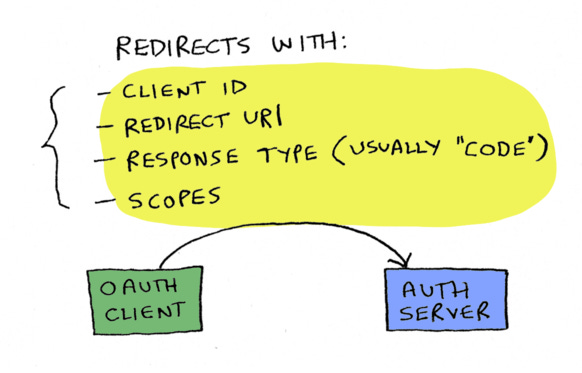 REDIRECTS WITH:
- CLIENT ID
- REDIRECT URI
- RESPONSE TYPE (USUALLY "CODE")
- SCOPES
OAUTH
CLIENT
AUTH
SERVER